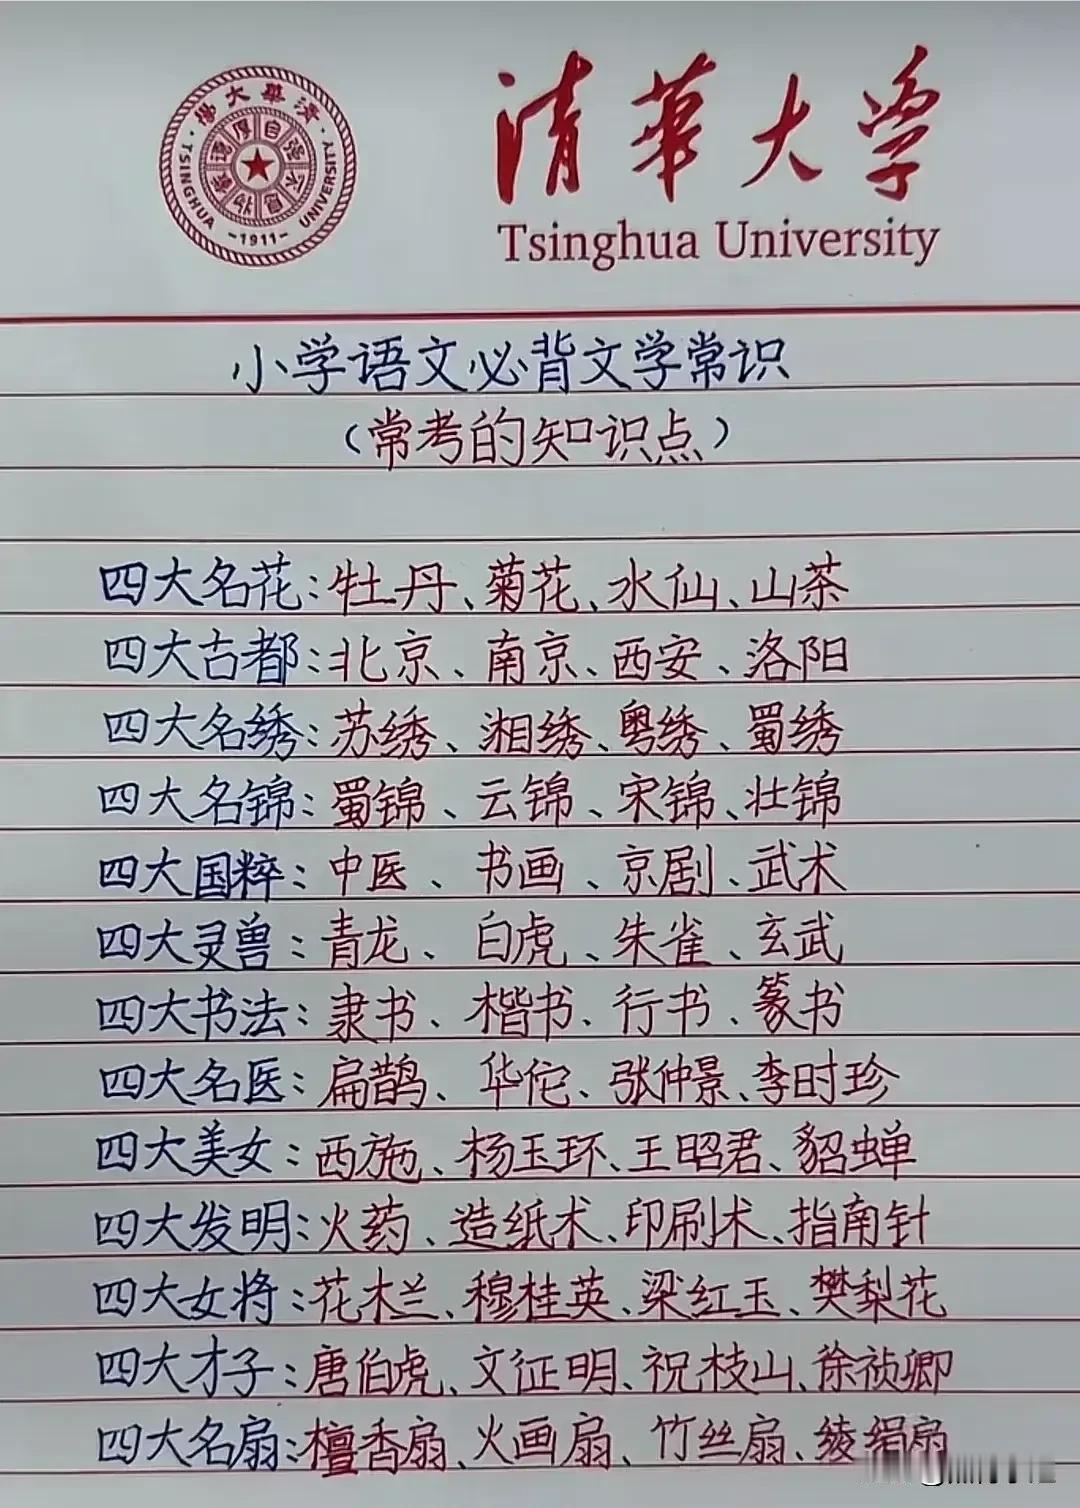 清華大学
Tsinghua University
清華大學
自强不息
厚德載物
TSINGHUA UNIVERSITY
-1911-
小学语文必背文学常识
(常考的知识点)
四大名花:牡丹、菊花、水仙、山茶
四大古都:北京、南京、西安、洛阳
四大名绣:苏绣、湘绣、粤绣、蜀绣
四大名锦:蜀锦、云锦、宋锦、壮锦
四大国粹:中医、书画、京剧、武术
四大灵兽:青龙、白虎、朱雀、玄武
四大书法:隶书、楷书、行书、篆书
四大名医:扁鹊、华佗、张仲景、李时珍
四大美女:西施、杨玉环、王昭君、貂蝉
四大发明:火药、造纸术、印刷术、指南针
四大女将:花木兰、穆桂英、梁红玉、樊梨花
四大才子:唐伯虎、文征明、祝枝山、徐祯卿
四大名扇:檀香扇、火画扇、竹丝扇、绫绢扇